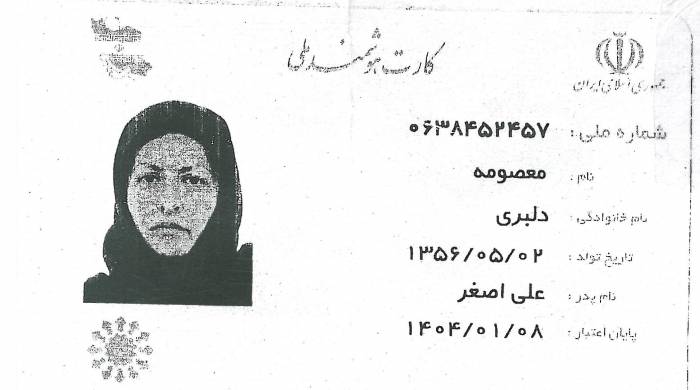 کارت هوشمند ملی
جمهوری اسلامی ایران
شماره ملی: ۰۶۳۸۴۵۲۴۵۷
نام: معصومه
نام خانوادگی: دلبری
تاریخ تولد: ۱۳۵۶/۰۵/۰۲
نام پدر: علی اصغر
پایان اعتبار: ۱۴۰۴/۰۱/۰۸